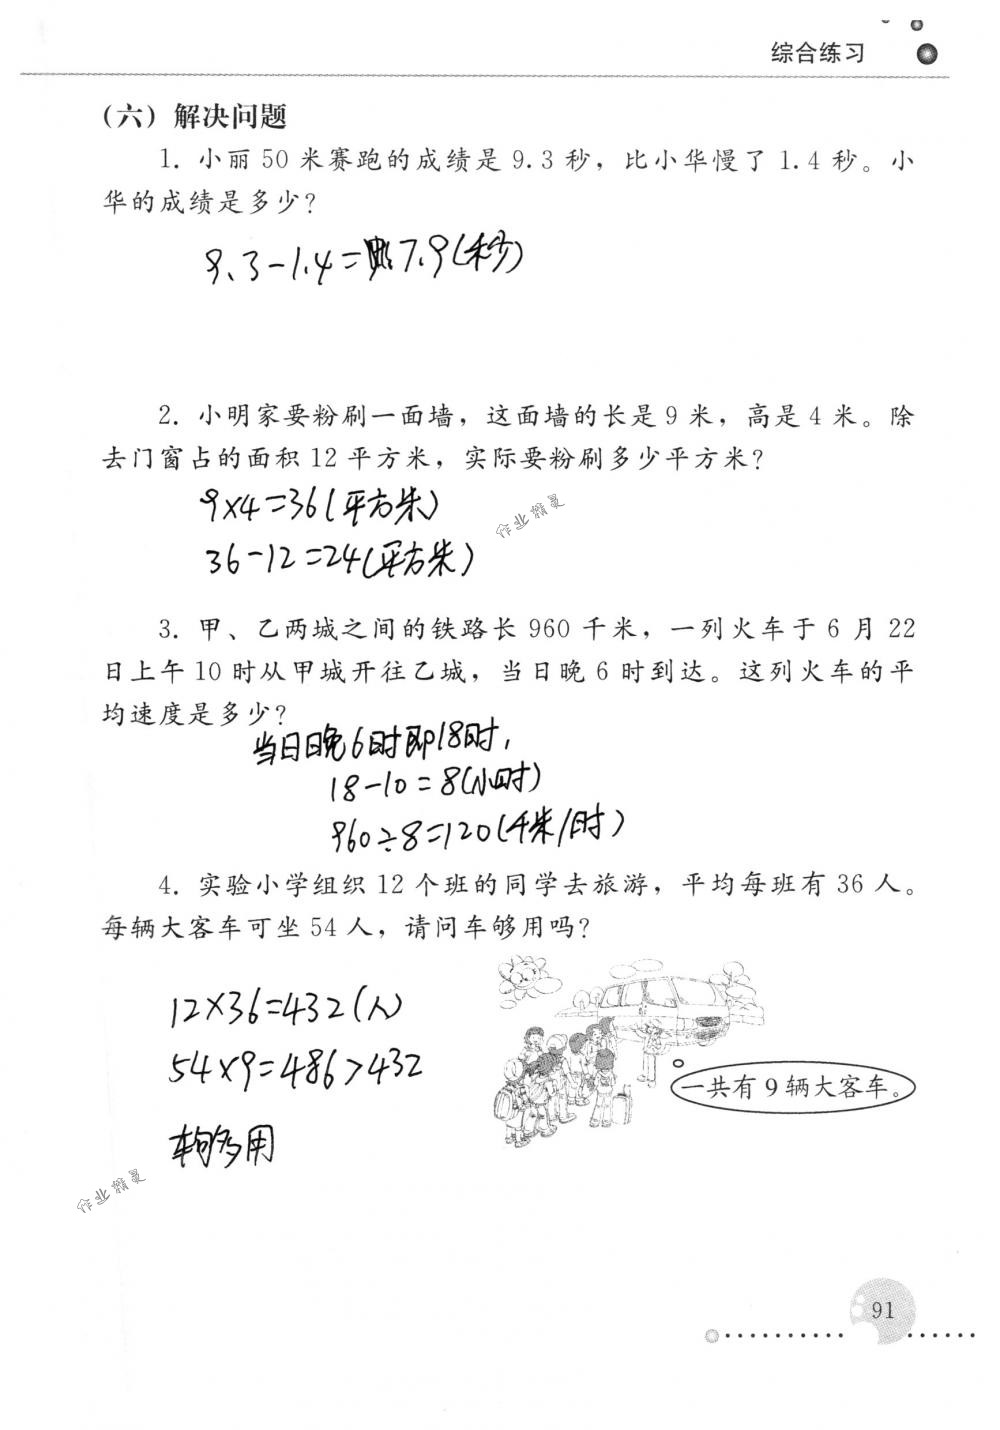 综合练习
(六) 解决问题
1. 小丽 50 米赛跑的成绩是 9.3 秒，比小华慢了 1.4 秒。小
华的成绩是多少?
9.3-1.4=7.9(秒)
2. 小明家要粉刷一面墙，这面墙的长是 9 米，高是 4 米。除
去门窗占的面积 12 平方米，实际要粉刷多少平方米?
9×4=36(平方米)
作业精灵
36-12=24(平方米)
3. 甲、乙两城之间的铁路长 960 千米，一列火车于 6 月 22
日上午 10 时从甲城开往乙城，当日晚 6 时到达。这列火车的平
均速度是多少?
当日晚6时即18时,
18-10=8(小时)
960÷8=120(千米/时)
4. 实验小学组织 12 个班的同学去旅游，平均每班有 36 人。
每辆大客车可坐 54 人，请问车够用吗?
12×36=432(人)
54×9=486>432
一共有 9 辆大客车。
车够用
作业精灵
91